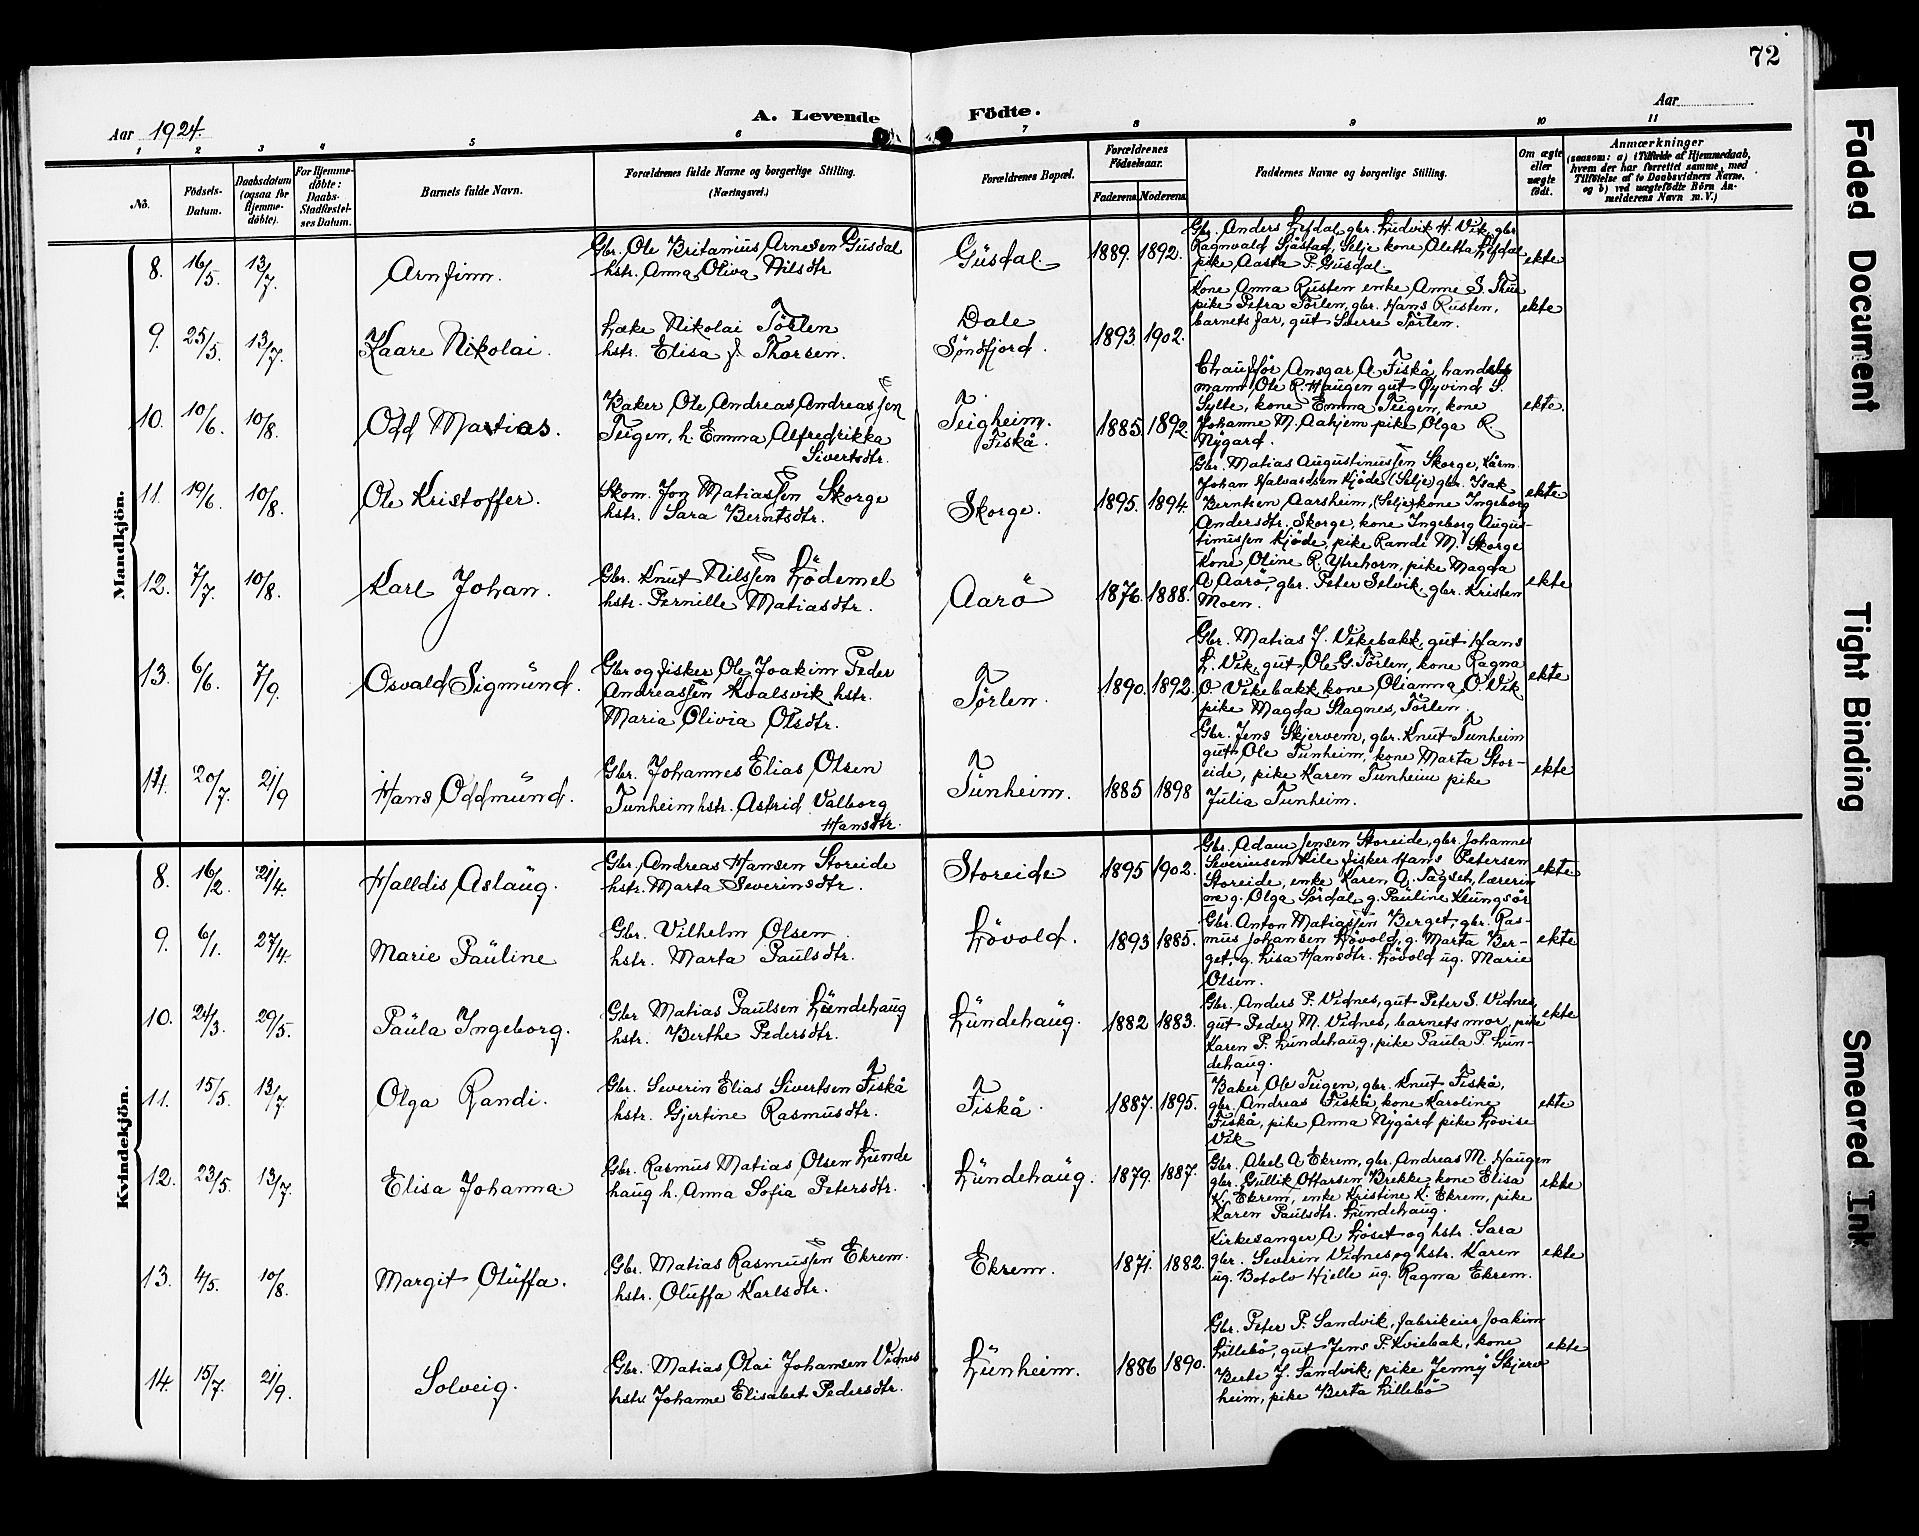 72
Aar 1924.
A. Levende Födte.
Aar
1 2 3 4 5 6 7 8 9 10 11
No.
Födsels-Datum.
Daabsdatum (ogsaa for Hjemme-döbte).
For Hjemme-döbte: Daabs-Stadfæstel-ses Datum.
Barnets fulde Navn.
Forældrenes fulde Navne og borgerlige Stilling.
(Næringsvei.)
Forældrenes Bopæl.
Forældrenes Födselsaar.
Faderens Moderens
Faddernes Navne og borgerlige Stilling.
Om ægte eller uægte födt.
Anmærkninger
(saasom: a) i Tilfælde af Hjemmedaab, hvem der har forrettet samme, med Tilföielse af to Daabsvidners Navne, og b) ved uægtefödte Börn An-melderens Navn m. V.)
Mandkjön.
8. 16/5. 13/7. Arnfinn.
Gbr. Ole Britanius Arnesen Gusdal
hstr. Anna Oliva Nilsdtr
Gusdal 1889. 1892.
Gbr. Anders Lefdal, gbr. Ludvik H. Vik, gbr.
Ragnvald Sjåstad, Selje kone Aletta Lefdal
pike Aasta P. Gusdal
ekte
9. 25/5. 13/7. Kaare Nikolai.
Læke Nikolai Tørlen
hstr. Elisa J. Thorsen.
Dale
Søndfjord. 1893 1902.
Kone Anna Rusten enke Anne S. Thue
pike Petra Tørlen, gbr. Hans Rusten,
barnets far, gut Sverre Tørlen.
ekte
10. 10/6. 10/8. Odd Matias.
Baker Ole Andreas Andreassen
Teigen, h. Emma Alfredrikka
Sivertsdtr.
Teigheim.
Fiskå. 1885 1892.
Chauffør Ansgar A Fiskå, handels
mann Ole R. Haugen gut Øyvind S.
Sylte, kone Emma Teigen, kone
Johanne M. Aahjem pike Olga R
Nygard.
ekte.
11. 19/6. 10/8. Ole Kristoffer.
Skom. Jon Matiassen Skorge
hstr. Sara Berntsdtr.
Skorge. 1895. 1894.
Gbr. Matias Augustinussen Skorge, Kårm.
Johan Halvardsen Kjøde (Selje) gbr. Isak
Berntsen Aarsheim, (Selje) kone Ingeborg
Andersdtr. Skorge, kone Ingeborg Augus-
tinussen Kjøde, pike Randi M. Skorge
ekte
12. 7/7. 10/8. Karl Johan.
Gbr. Knut Nilssen Lödemel
hstr. Pernille Matiasdtr.
Aarö 1876. 1888.
Kone Oline R. Ytrehorn, pike Magda
A Aarö, gbr. Peter Selvik, gbr. Kristen
Moen.
ekte
13. 6/6. 7/9. Osvald Sigmund.
Gbr og fisker Ole Joakim Peder
Andreassen Kvalsvik hstr.
Maria Olivia Olsdtr.
Tørlen. 1890. 1892.
Gbr. Matias J. Vikebakk, gut Hans
L. Vik, gut Ole G. Tørlen, kone Ragna
O Vikebakk, kone Olianna O. Vik
pike Magda Slagnes, Tørlen.
ekte
14. 20/7. 21/9 Hans Oddmund.
Gbr. Johannes Elias Olsen
Tunheim hstr. Astrid Valborg
Hansdtr.
Tunheim. 1885 1898
Gbr. Jens Skjervem, gbr. Knut Tunheim
gut Ole Tunheim, kone Marta Stor-
eide, pike Karen Tunheim pike
Julia Tunheim.
ekte
Kvindekjön.
8. 16/2. 21/4. Halldis Aslaug.
Gbr. Andreas Hansen Storeide
hstr. Marta Severinsdtr.
Storeide 1895 1902.
Gbr. Adam Jensen Storeide, gbr. Johannes
Severinsen Kile fisker Hans Petersen
Storeide, enke Karen A. Tagset, lærerin
ne g. Olga Sørdal g. Pauline Klungsör
ekte
9. 6/1. 27/4. Marie Pauline
Gbr. Vilhelm Olsen
hstr. Marta Paulsdtr.
Lövold. 1893 1885.
Gbr. Anton Matiassen Berget, gbr. Ras-
mus Johansen Lövold, g. Marta Ber-
get, g. Lisa Hansdtr. Lövold ug. Marie
Olsen.
ekte
10. 24/3. 29/5. Paula Ingeborg.
Gbr Matias Paulsen Lundehaug
hstr. Berthe Pedersdtr.
Lundehaug. 1882 1883.
Gbr. Anders P. Vidnes, gut Peter S. Vidnes,
gut Peder M. Vidnes, barnets mor, pike
Karen P. Lundehaug, pike Paula P. Lun-
dehaug.
ekte
11. 15/5. 13/7. Olga Randi.
Gbr. Severin Elias Sivertsen Fiskå
hstr. Gjertine Rasmusdtr.
Fiskå. 1887. 1895.
Baker Ole Teigen, gbr. Knut Fiskå,
gbr. Andreas Fiskå, kone Karoline
Fiskå, pike Anna Nygård pike Lovise
Vik
ekte
12. 23/5. 13/7. Elisa Johanna
Gbr. Rasmus Matias Olsen Lunde
haug h. Anna Sofia Petersdtr.
Lundehaug. 1879. 1887.
Gbr. Abel A Ekrem, gbr. Andreas M. Haugen
gbr. Gullik Ottarsen Brekke, kone Elisa
K. Ekrem, enke Kristine K. Ekrem, pike
Karen Paulsdtr. Lundehaug.
ekte
13. 4/5. 10/8. Margit Oluffa.
Gbr. Matias Rasmussen Ekrem.
hstr. Oluffa Karlsdtr.
Ekrem. 1871. 1882.
Kirkesanger A Löset og hstr. Sara
gbr. Severin Vidnes og hstr. Karen
ug. Botolv Hjelle ug. Ragna Ekrem.
ekte
14. 15/7. 21/9. Solveig.
Gbr. Matias Olai Johansen Vidnes
hstr Johanne Elisabet Pedersdtr.
Lunheim. 1886 1890.
Gbr. Peter P. Sandvik, fabrikeier Joakim
Lillebö, gut Jens P. Kviebak, kone
Berte J. Sandvik, pike Jenny Skjerv
heim, pike Berta Lillebö
ekte
Faded Document
Tight Binding
Smeared Ink